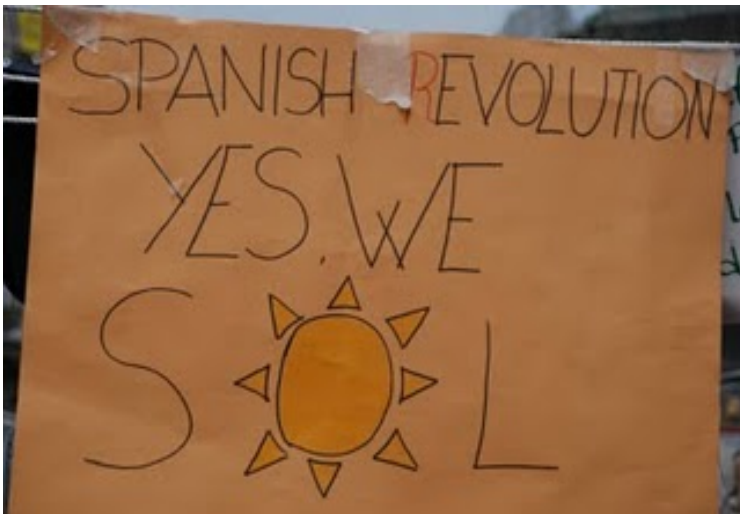 SPANISH REVOLUTION
YES, WE
SOL